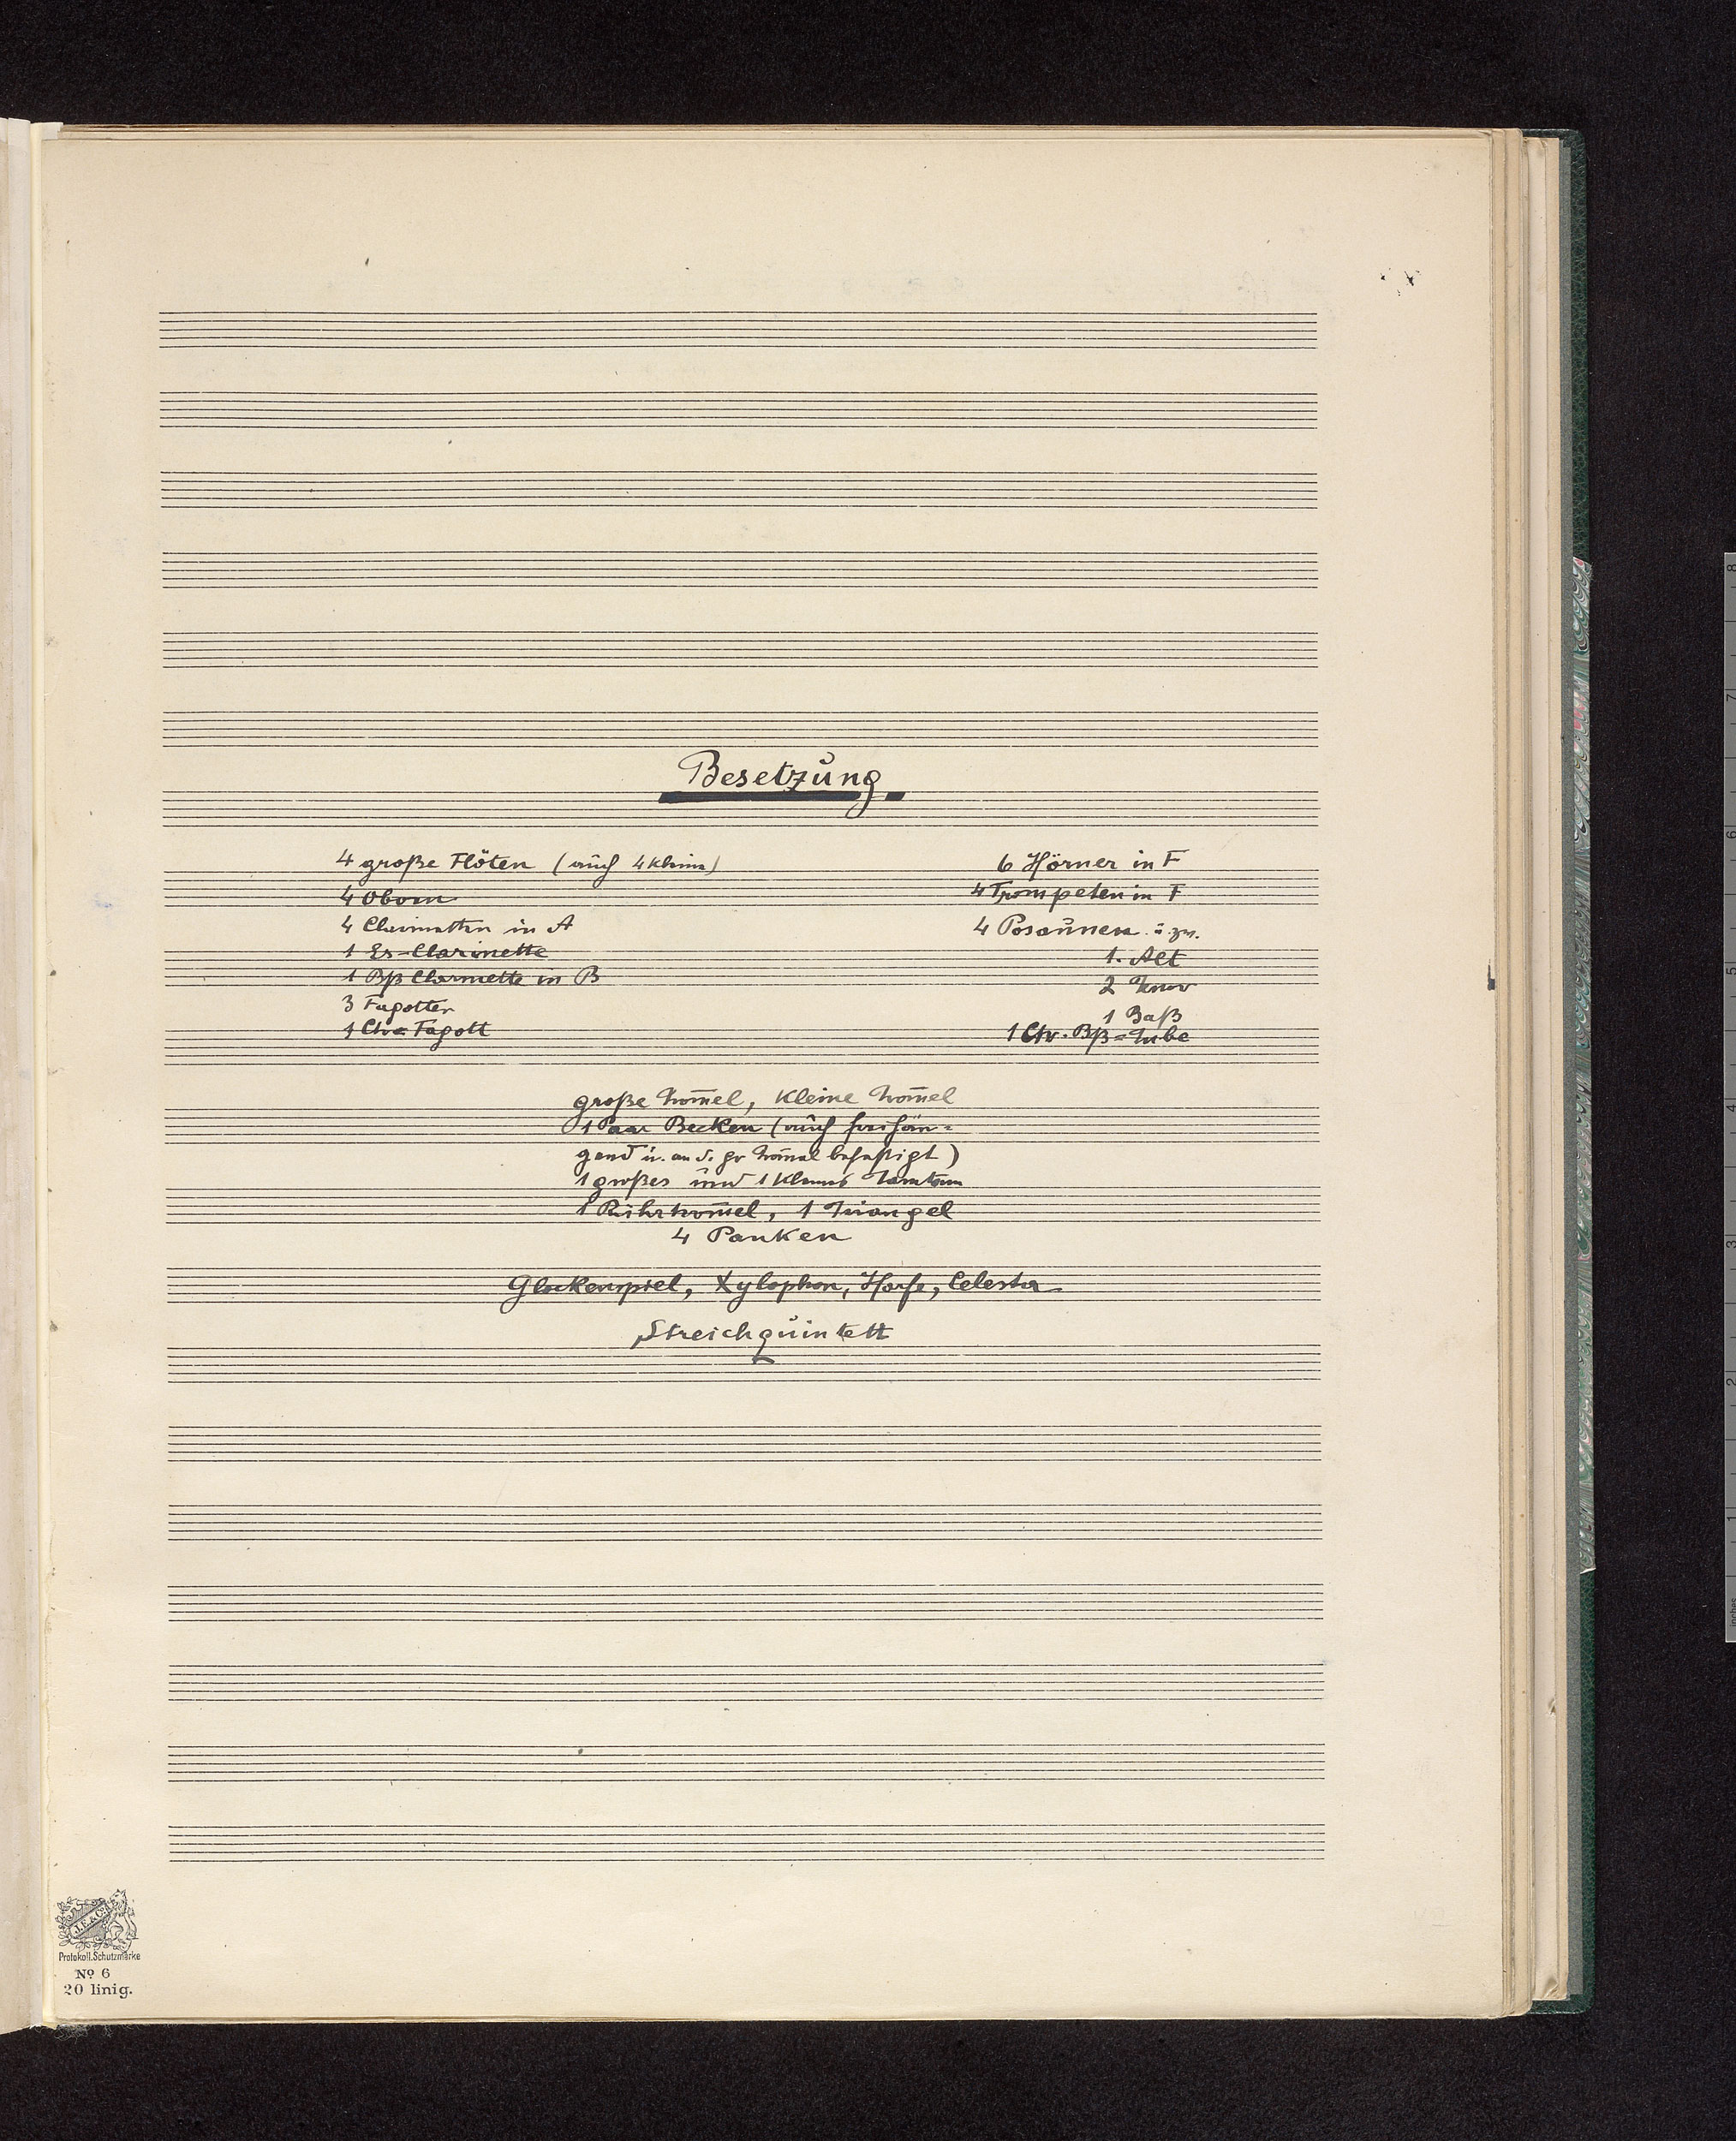 Besetzung
4 große Flöten (auch 4 kleine)
4 Oboen
4 Clarinetten in A
1 Es-Clarinette
1 Bß Clarinette in B
3 Fagotte
1 Ctr=Fagott
6 Hörner in F
4 Trompeten in F
4 Posaunen u. zw.
1. Alt
2 Tenor
1 Baß
1 Ctr.Bß=Tuba
große Trom̄el, kleine Trom̄el
1 Paar Becken (auch freihän=
gend u. an d. gr Trom̄el befestigt)
1 großes und 1 kleines Tamtam
1 Rührtrom̄el, 1 Triangel
4 Pauken
Glockenspiel, Xylophon, Harfe, Celesta
Streichquintett
J.E. & Co.
Protokoll. Schutzmarke
No 6
20 linig.
8
7
6
5
4
3
2
1
inches